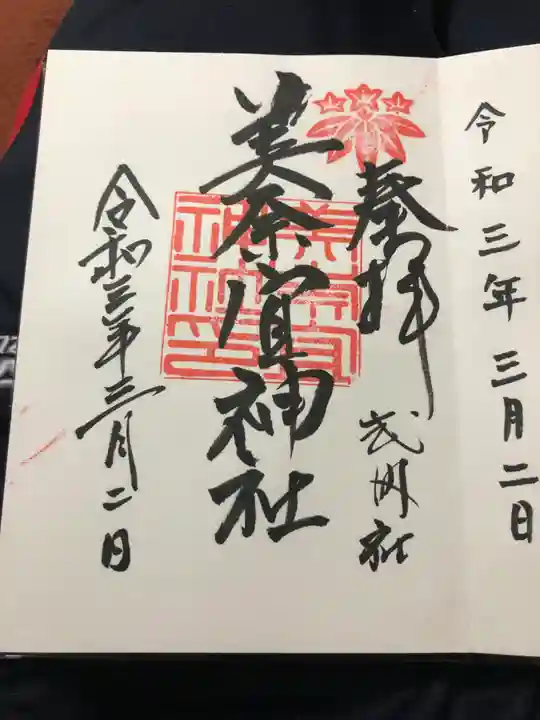 令和三年三月二日
奉拝
式内社
美奈宜神社
令和三年三月二日